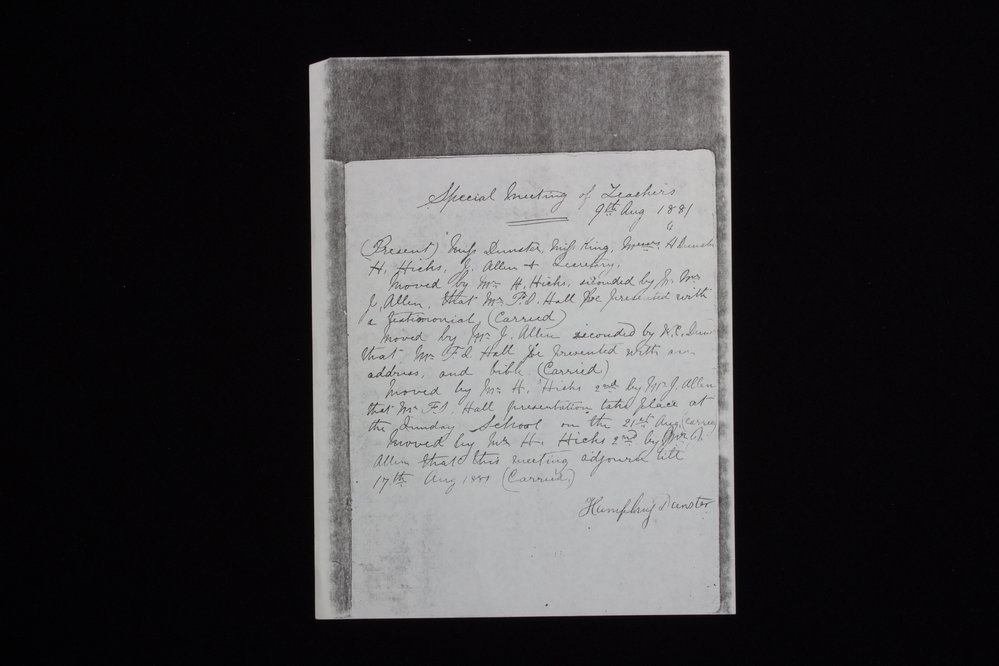 Special Meeting of Teachers
9th Aug 1881
(Present) Miss Dunster, Miss King, Messrs H Dunster
H. Hicks, J. Allen & Secretary.
Moved by Mr H. Hicks, seconded by Mr
J. Allen, that Mr F.S. Hall be presented with
a testimonial, (Carried)
Moved by Mr J. Allen seconded by
that Mr F.S. Hall be presented with an
address, and bible. (Carried)
Moved by Mr H. Hicks 2nd by Mr J. Allen
that Mr F.S. Hall presentation take place at
the Sunday School on the 21st Aug. (Carried
Moved by Mr H. Hicks 2nd by Mr
Allen that this meeting adjourn till
17th Aug 1881 (Carried,)
Humphrey Dunster